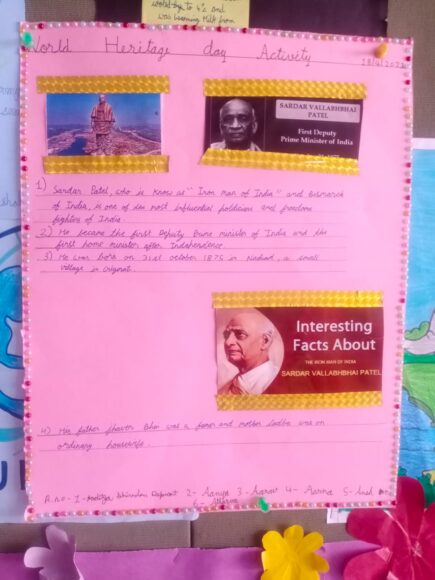 costed up to 4°c and
was becoming Melt from
World Heritage day Activity
18/4/2023
SARDAR VALLABHBHAI
PATEL
First Deputy
Prime Minister of India
1) Sardar Patel, who is know as "Iron man of India" and Bismarck
of India, is one of its most influential politician and freedome
fighter of India.
2) He became the first Deputy Prime minister of India and the
first home minister after Indahendence.
3) He was born on 31st october 1875 in Nadiad, a small
village in Gujarat.
Interesting
Facts About
THE IRON MAN OF INDIA
SARDAR VALLABHBHAI PATEL
4) His father Jhaver Bhai was a farmer and mother Ladba was an
ordinary housewife.
R.no - 1 - Aaditya Rajput 2 - Aanya 3 - Aarav 4 - Aarna 5 - Ansh
6 - Atharva